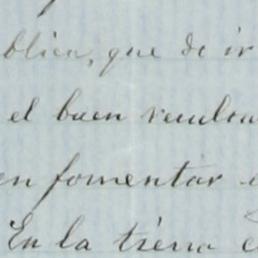 blica, que de ir
el buen resulta
en fomentar
En la tierra e